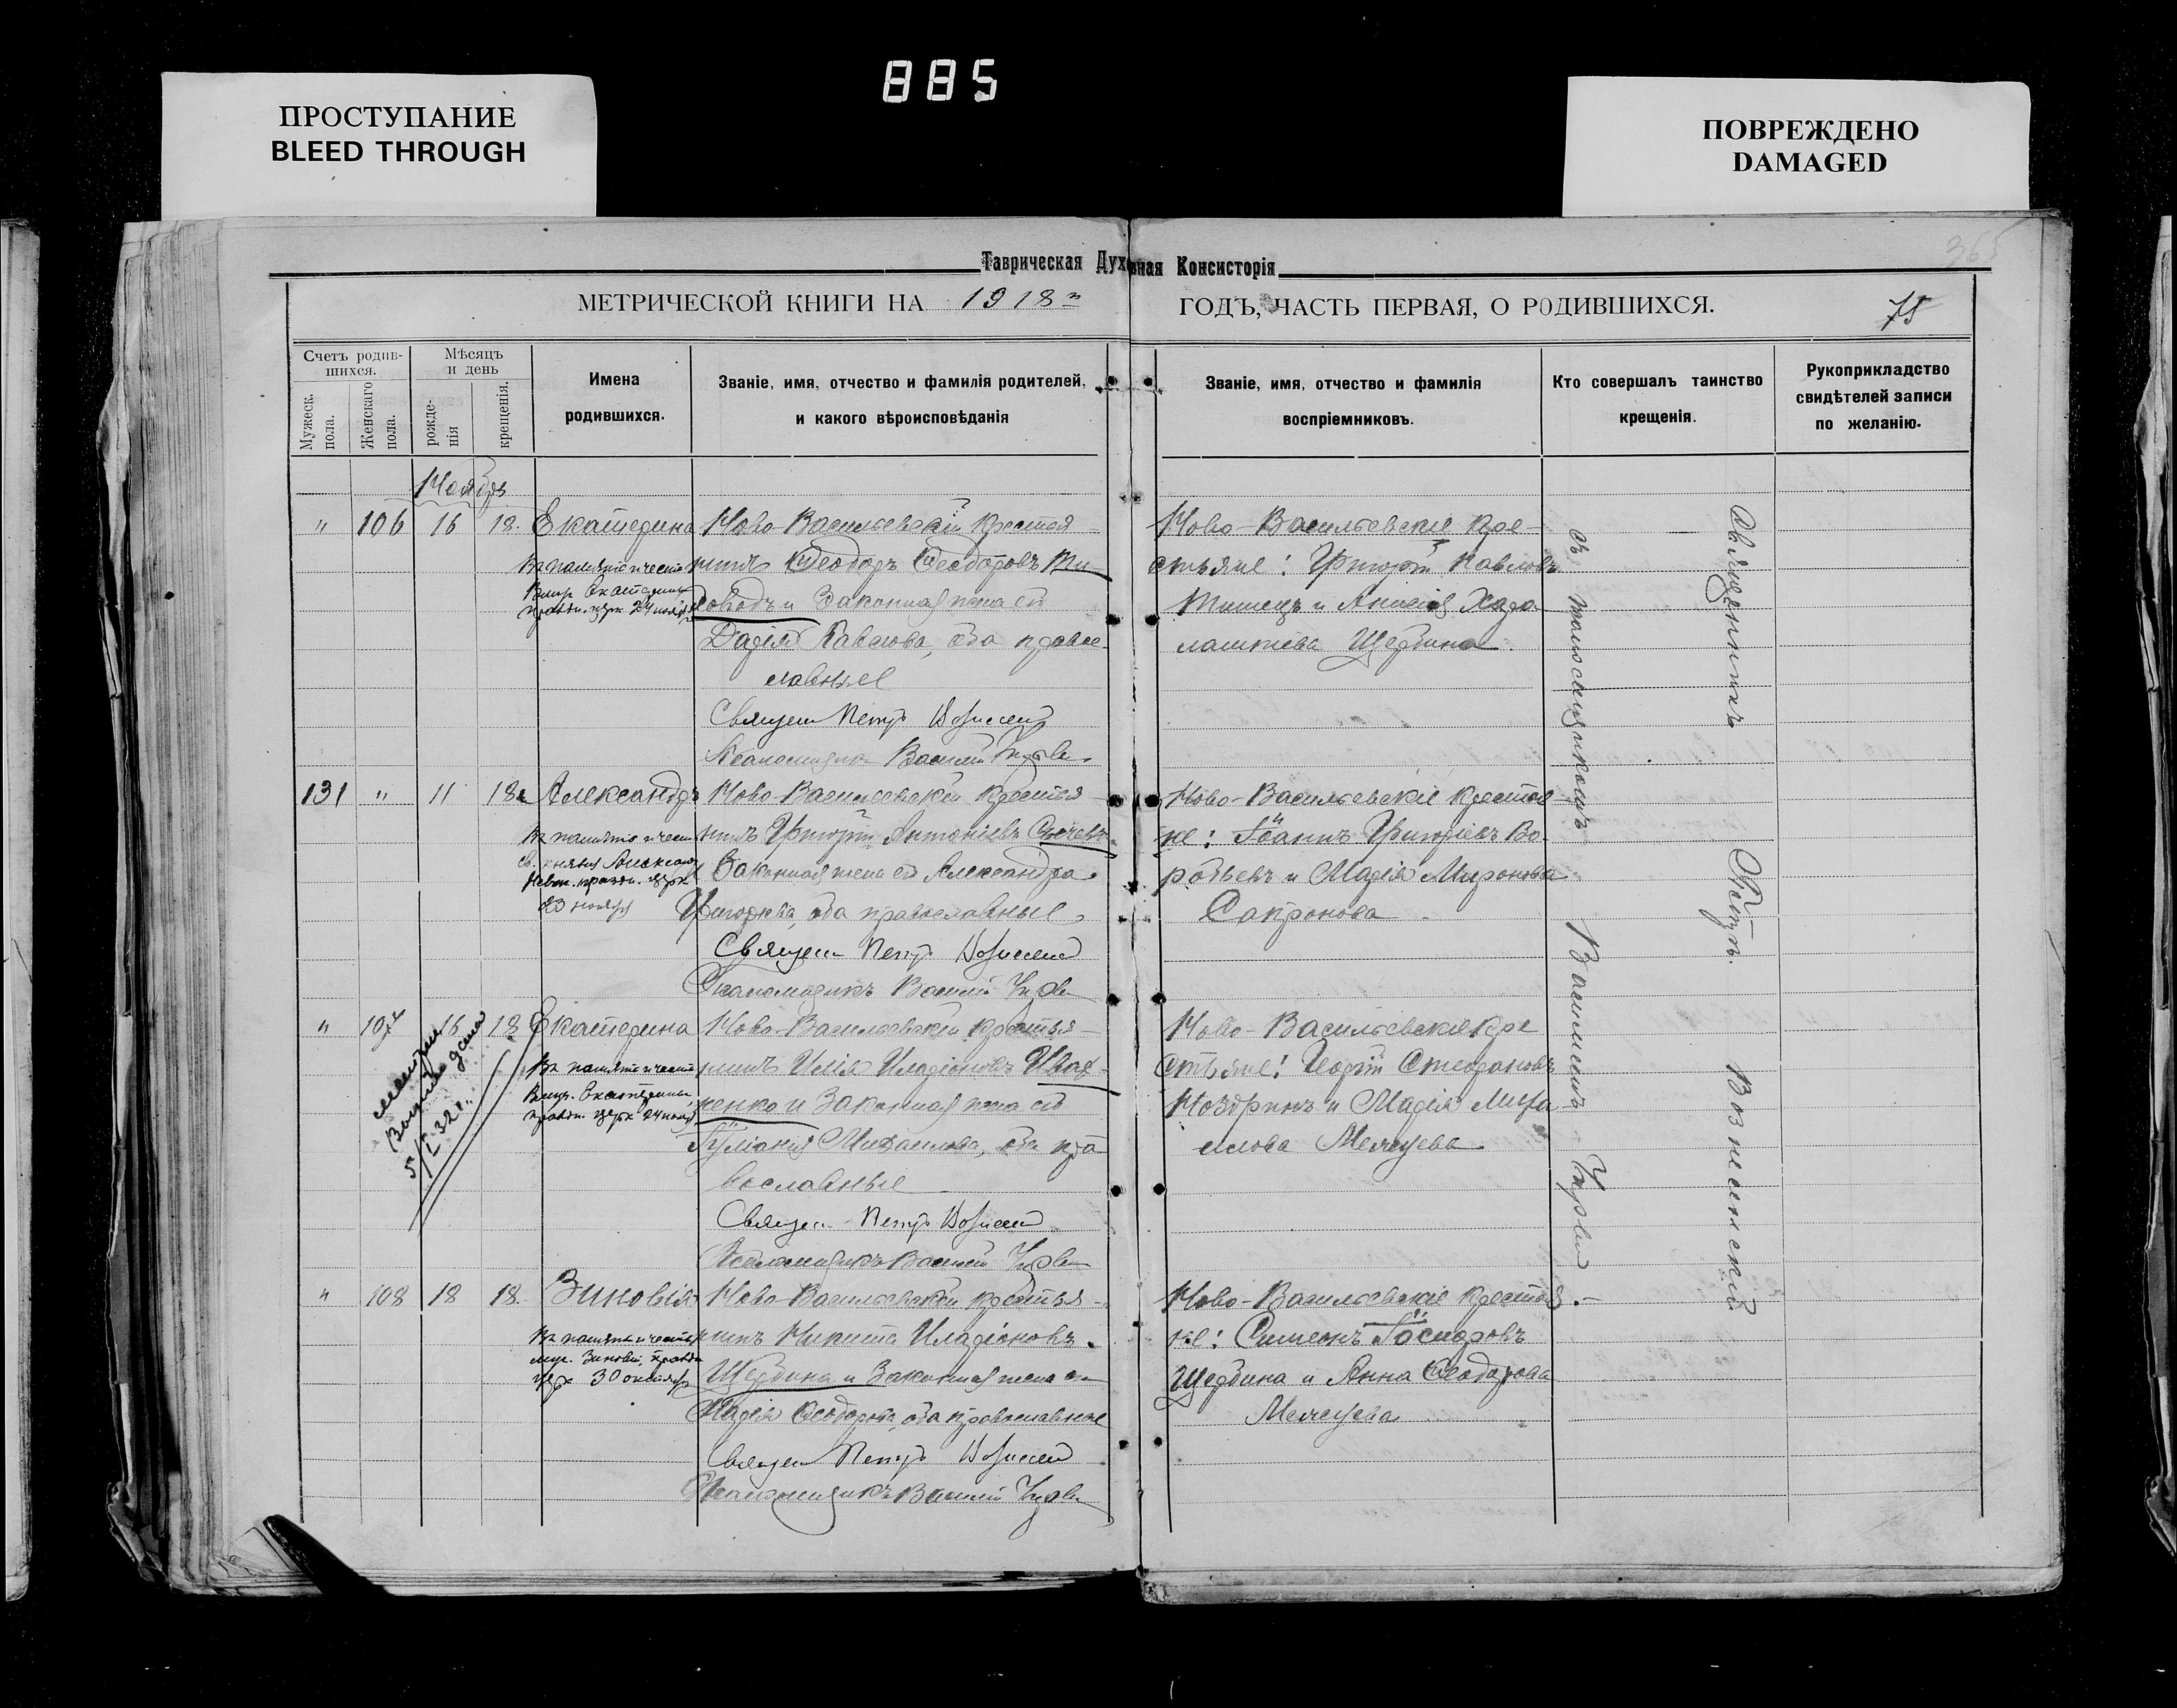 885
ПРОСТУПАНИЕ
BLEED THROUGH
ПОВРЕЖДЕНО
DAMAGED
Таврическая Духовная Консисторія
365
МЕТРИЧЕСКОЙ КНИГИ НА 1918 ГОДЪ, ЧАСТЬ ПЕРВАЯ, О РОДИВШИХСЯ.
75
Счетъ родив-
шихся.
Мужеск.
пола.
Женскаго
пола.
Мѣсяцъ
и день
рожде-
нія
крещенія.
Имена
родившихся.
Званіе, имя, отчество и фамилія родителей,
и какого вѣроисповѣданія
Званіе, имя, отчество и фамилія
воспріемниковъ.
Кто совершалъ таинство
крещенія.
Рукоприкладство
свидѣтелей записи
по желанію.
Ноябрь
" 106 16 18. Екатерина
Въ память и честь
Вмуч. Екатерины
праздн. церк 24 ноября
Ново-Васильевскій крестья-
нинъ Ѳеодоръ Ѳеодоровъ
и Законная жена его
Дарія Павлова, оба право-
славные
Священ Петръ Вознесен
Псаломщикъ Василій
Ново-Васильевскіе кре-
стьяне: Григорій Павловъ
и Анисія Хара-
лампіева Щербина
131 " 11 18 Александръ
Въ память и честь
св. князя Александ
Невск. праздн. церк
23 ноября
Ново-Васильевскій крестья-
нинъ Григорій Антоніевъ Сычевъ
Законная жена его Александра
Григорьева, оба православные
Священ Петръ Вознесен
Псаломщикъ Василій
Ново-Васильевскіе крестья-
не: Іоаннъ Григоріевъ Во-
робьевъ и Марія Миронова
Сапронова
" 107 16 18 Екатерина
5/I 32 г.
Въ память и честь
Вмуч. Екатерины,
праздн. церк 24 ноября
Ново-Васильевскій крестья-
нинъ Илія Иларіоновъ Иващ-
ненко и Законная жена его
Іуліанія Михаилова, оба пра-
вославные
Священ Петръ Вознесен
Псаломщикъ Василій
Ново-Васильевскіе кре
стьяне: Георгій Стефановъ
Ноздринъ и Марія Миха
илова
" 108 18 18. Зиновія
Въ память и честь
муч. Зиновіи, праздн
церк 30 октября
Ново-Васильевскій крестья-
нинъ Никита Иларіоновъ
Щербина и Законная жена его
Марія Ѳеодорова, оба православные
Священ Петръ Вознесен
Псаломщикъ Василій
Ново-Васильевскіе крестья-
не: Симеонъ Іосифовъ
Щербина и Анна Ѳеодорова
Священникъ Петръ Вознесенскій
съ псаломщикомъ Василіемъ